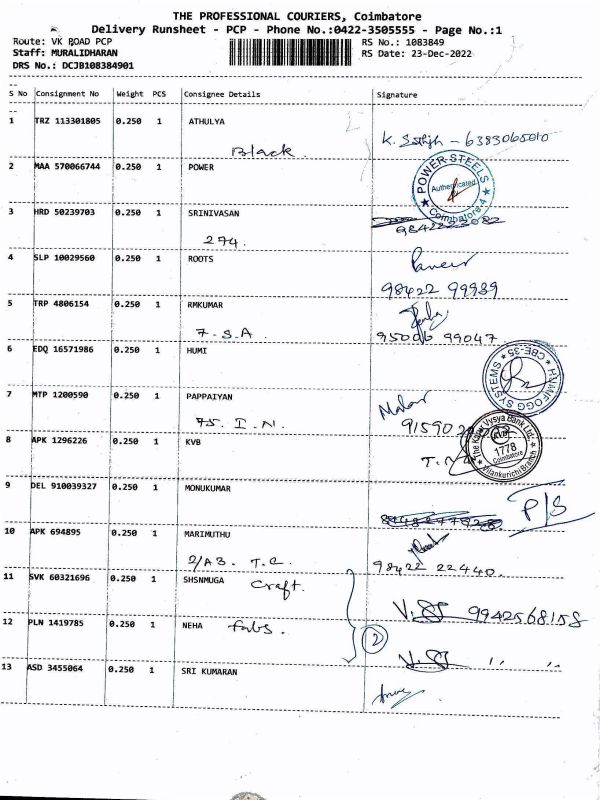 THE PROFESSIONAL COURIERS, Coimbatore
Delivery Runsheet - PCP - Phone No.:0422-3505555 - Page No.:1
Route: VK ROAD PCP RS No.: 1083849
Staff: MURALIDHARAN RS Date: 23-Dec-2022
DRS No.: DCJB108384901
S No Consignment No Weight PCS Consignee Details Signature
1 TRZ 113301805 0.250 1 ATHULYA
Black. - 6383065010
2 MAA 570066744 0.250 1 POWER
POWER STEELS Authenticated Coimbatore-4
3 HRD 50239703 0.250 1 SRINIVASAN
274.
4 SLP 10029560 0.250 1 ROOTS
98422 99939
5 TRP 4806154 0.250 1 RMKUMAR
7. S.A 95006 99047
6 EDQ 16571986 0.250 1 HUMI
SYSTEMS CBE-35
7 MTP 1200590 0.250 1 PAPPAIYAN
75. I.N.
8 APK 1296226 0.250 1 KVB
The Karur Vysya Bank Ltd. KVB 1778 Coimbatore Branch
9 DEL 910039327 0.250 1 MONUKUMAR
P/S
10 APK 694895 0.250 1 MARIMUTHU
2/A3. T.C. 98422 22440.
11 SVK 60321696 0.250 1 SHSNMUGA craft.
9942568158
12 PLN 1419785 0.250 1 NEHA fabs.
2
13 ASD 3455064 0.250 1 SRI KUMARAN